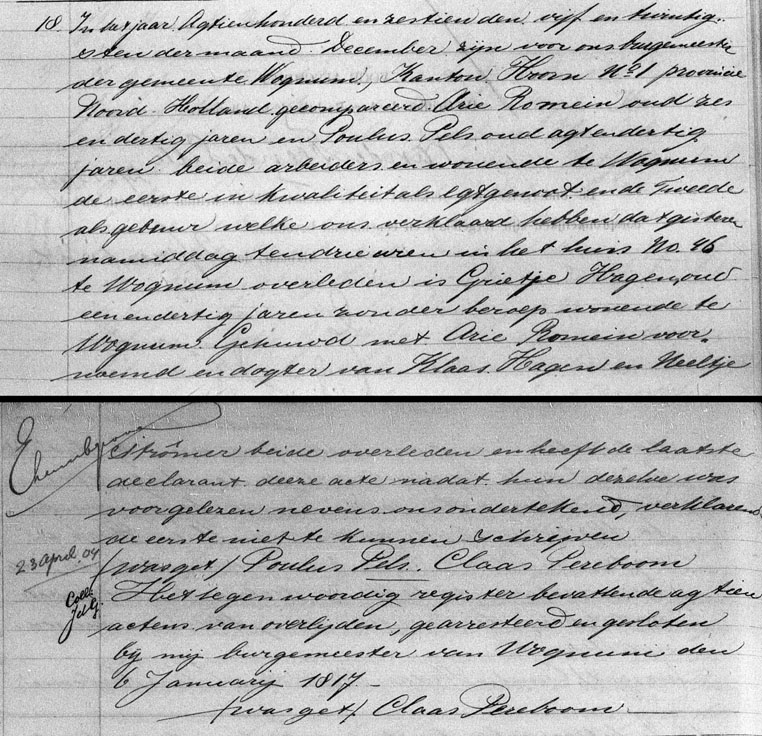 18. In het jaar Agtienhonderd en zestien den vijf en twintig-
sten der maand December zijn voor ons burgemeester
der gemeente Wognum, Kanton Hoorn No 1 provincie
Noord-Holland gecompareerd Arie Romein oud zes
en dertig jaren en Poulus Pels oud agtendertig
jaren beide arbeiders en wonende te Wognum
de eerste in kwaliteit als egtgenoot en de tweede
als gebuur welke ons verklaard hebben dat gisteren
namiddag ten drie uren in het huis No. 46
te Wognum overleden is Grietje Hagen, oud
een en dertig jaren zonder beroep wonende te
Wognum. Gehuwd met Arie Romein voor-
noemd en dogter van Klaas Hagen en Neeltje
Strômer beide overleden en heeft de laatste
declarant deeze acte nadat hun dezelve was
voorgelezen nevens ons ondertekend, verklarende
de eerste niet te kunnen schrijven
(was get) Poulus Pels. Claas Pereboom
23 April. 04
Het tegenwoordig register bevattende agtien
Coll.
actens van overlijden, gearresteerd en gesloten
bij mij burgemeester van Wognum den
6 Januarij 1817.-
(was get) Claas Pereboom